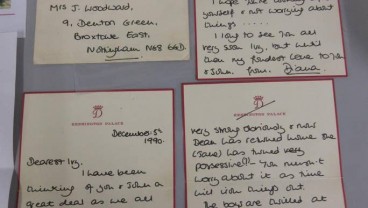 MRS J. WOODWARD,
9, Denton Green,
Broxtowe East,
Nottingham NG8 6GD.
yourself & not worrying about
things .....
I long to see you all
very soon Izy, but until
then my fondest love to you
& John, from, Diana.
KENSINGTON PALACE
December 5th
1990.
Dearest Izy,
I have been
thinking of you & John a
great deal as we all
KENSINGTON PALACE
very strong obviously & now
Dean has returned home the
(Jane) has turned very
possessive!! You mustn't
worry about it as time
will iron things out.
The boys are excited at